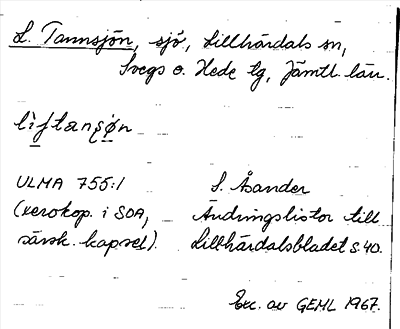 L. Tannsjön, sjö, Lillhärdals sn,
Svegs o. Hede tg, Jämtl. län.
ULMA 755:1
(xerokop. i SOA,
särsk. kapsel).
S. Åsander
Ändringslistor till
Lillhärdalsbladet s. 40.
Exc. av GEML 1967.